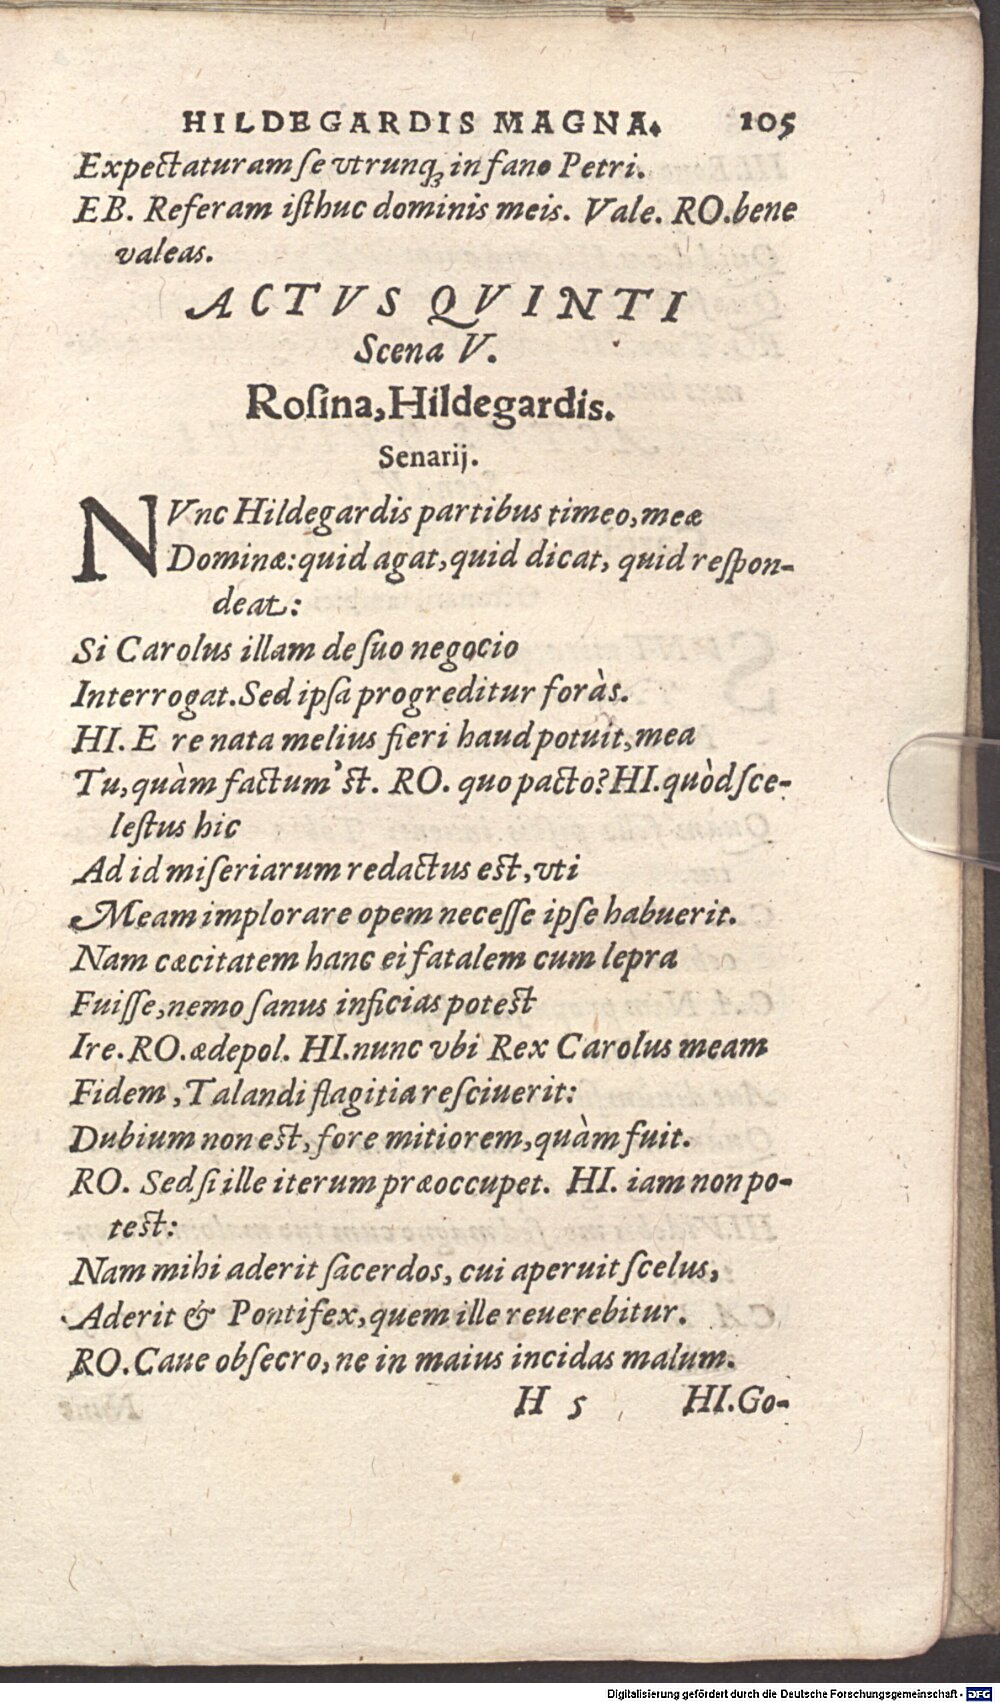 HILDEGARDIS MAGNA. 105
Expectaturam ſe vtrunqꝫ in fano Petri.
EB. Referam iſthuc dominis meis. Vale. RO. bene
valeas.
ACTVS QVINTI
Scena V.
Roſina, Hildegardis.
Senarij.
NVnc Hildegardis partibus timeo, meæ
Dominæ: quid agat, quid dicat, quid reſpon-
deat:
Si Carolus illam de ſuo negocio
Interrogat. Sed ipſa progreditur foràs.
HI. E re nata melius fieri haud potuit, mea
Tu, quàm factum'st. RO. quo pacto? HI. quòd ſce-
leſtus hic
Ad id miſeriarum redactus est, vti
Meam implorare opem neceſſe ipſe habuerit.
Nam cæcitatem hanc ei fatalem cum lepra
Fuiſſe, nemo ſanus inficias potest
Ire. RO. ædepol. HI. nunc vbi Rex Carolus meam
Fidem, Talandi flagitia reſciuerit:
Dubium non est, fore mitiorem, quàm fuit.
RO. Sed ſi ille iterum præoccupet. HI. iam non po-
test:
Nam mihi aderit ſacerdos, cui aperuit ſcelus,
Aderit & Pontifex, quem ille reuerebitur.
RO. Caue obſecro, ne in maius incidas malum.
H 5 HI. Go-
Digitalisierung gefördert durch die Deutsche Forschungsgemeinschaft - DFG